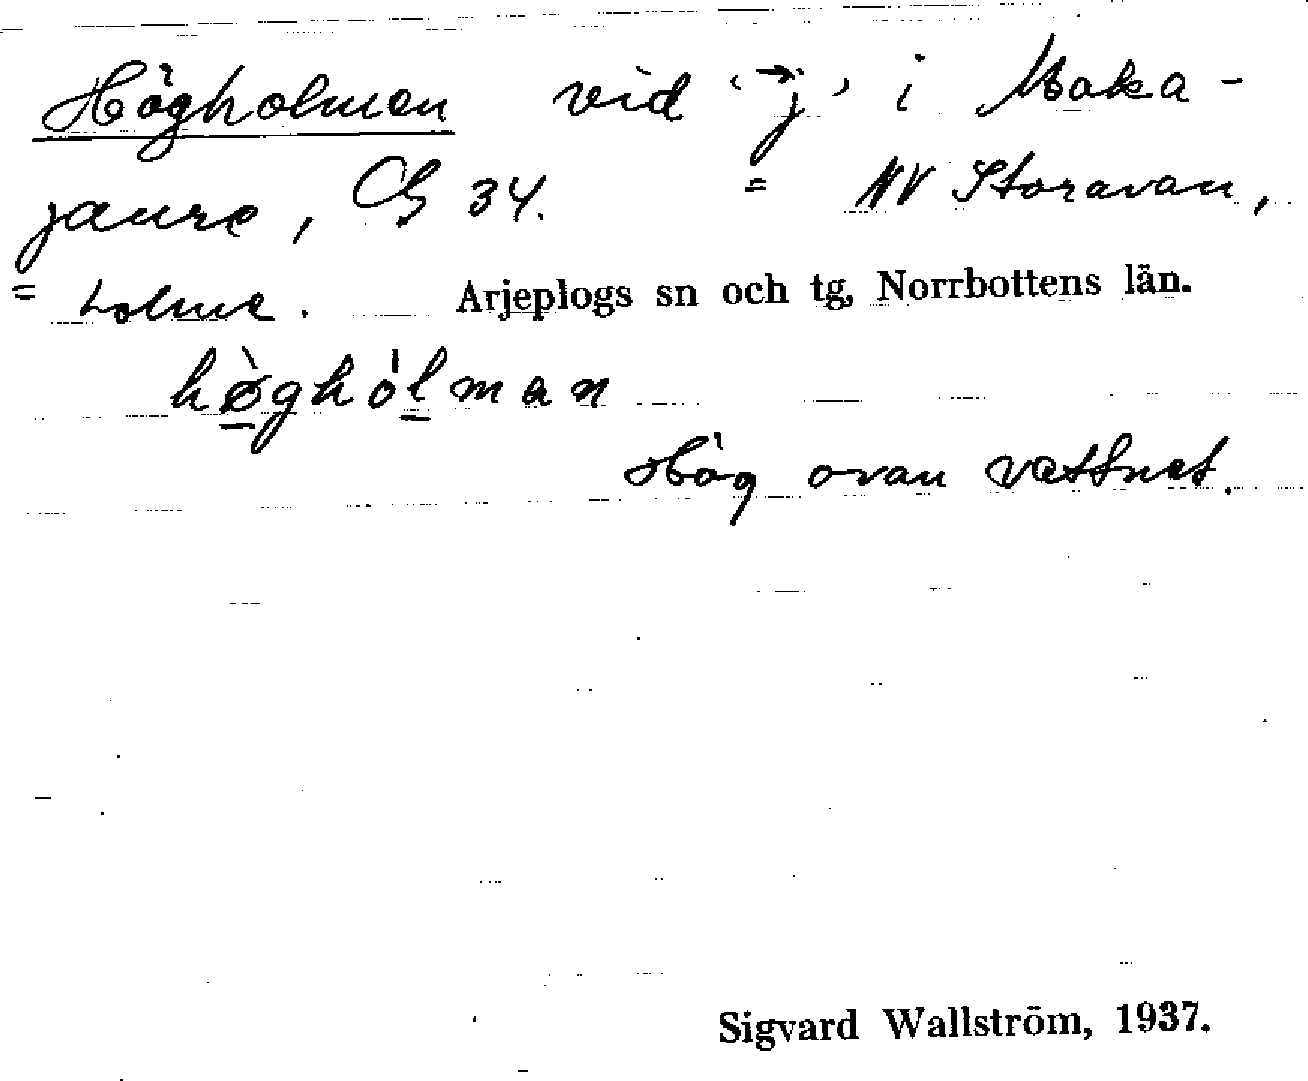 Högholmen vid '→j' i Maka-
jaure, G 34. = NV Storavan,
= holme. Arjeplogs sn och tg, Norrbottens län.
hø̀ghólman
Hög ovan vattnet.
Sigvard Wallström, 1937.